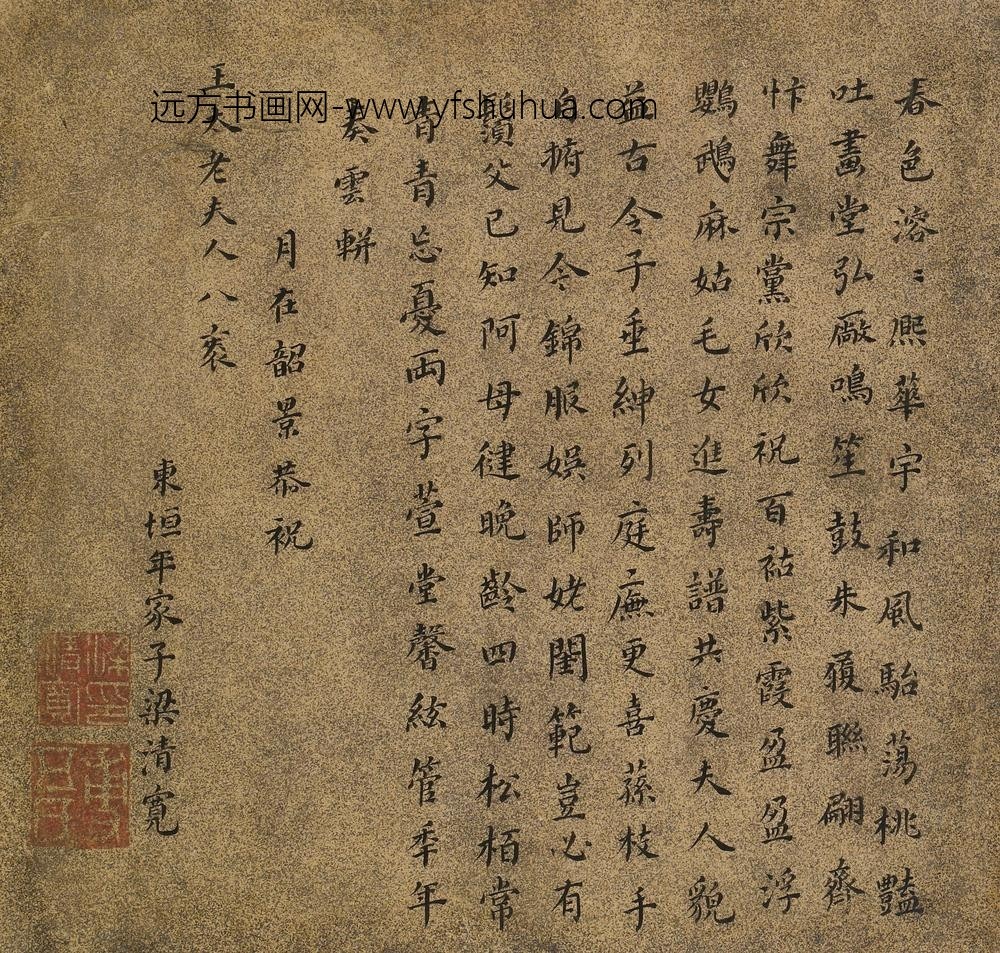 春色溶〻熙華宇和風駘蕩桃豔
吐畫堂弘廠鳴笙鼓朱履聯翩齊
忭舞宗黨欣欣祝百祜紫霞盈盈浮
鸚鵡麻姑毛女進壽譜共慶夫人貌
益古令子垂紳列庭廡更喜蓀枝手
自捬見今錦服娛師姥閨範豈必有
鬚父已知阿母健晚齡四時松栢常
青青忘憂両字萱堂馨絃管年年
奏雲軿
月在韶景恭祝
王太老夫人八袠
東垣年家子梁清寬
远方书画网-www.yfshuhua.com